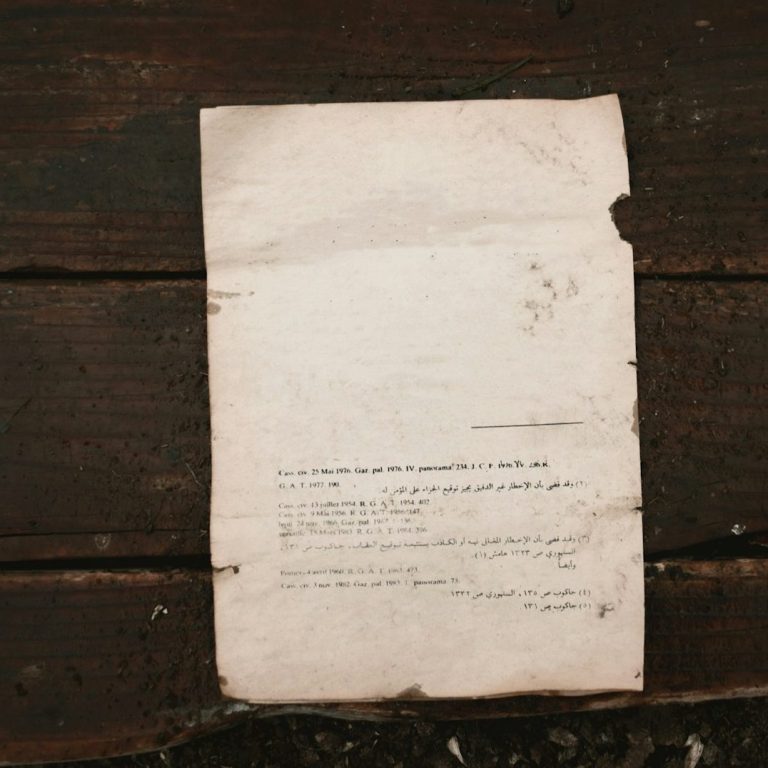 Cass. civ. 25 Mai 1976. Gaz. pal. 1976. IV. panorama 234. J. C. P. 1976. IV. R.
G. A. T. 1977. 190.
(٢) وقد قضى بأن الإخطار غير الدقيق يجيز توقيع الجزاء على المؤمن له.
Cass. civ. 13 juillet 1954. R. G. A. T. 1954. 402.
Cass. civ. 9 Mai 1956. R. G. A. T. 1956. 147.
24 nov. 1966. Gaz. pal.
15 Mars 1983. R. G. A. T. 1984.
(٣) وقد قضى بأن الإخطار أو الكاذب يستتبعه توقيع جاكوب ص ١٣٥،
السنهوري ص ١٣٢٣ هامش (١).
وأيضاً
avril 1960. R. G. A. T. 473.
Cass. civ. 3 nov. 1982. Gaz. pal. 1983. 1. panorama. 73.
(٤) جاكوب ص ١٣٥، السنهوري ص ١٣٢٢
(٥) جاكوب ص ١٣١